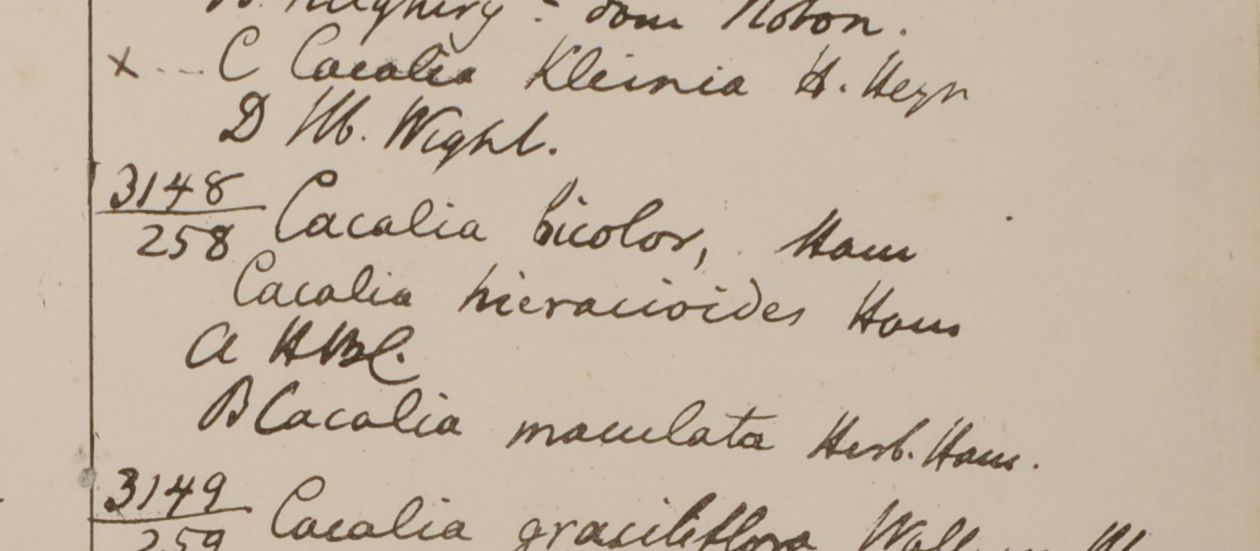 dom Noton.
x -- C Cacalia Kleinia H. Heyn
D Hb. Wight.
3148
258 Cacalia bicolor, Ham
Cacalia hieracioides Ham
a HBC.
B Cacalia maculata Herb. Ham.
3149
259 Cacalia graciliflora Wall